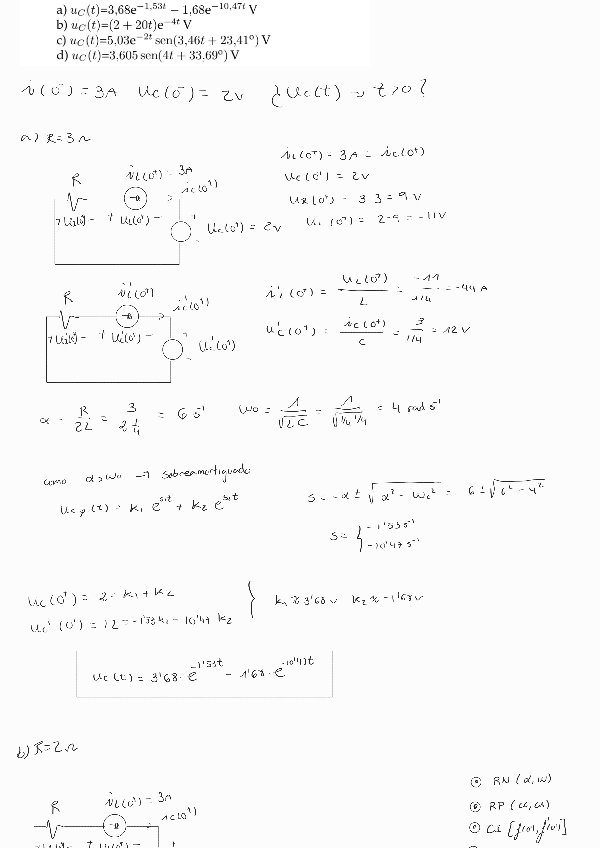 a) u_C(t)=3,68e^{−1,53t} − 1,68e^{−10,47t} V
b) u_C(t)=(2 + 20t)e^{−4t} V
c) u_C(t)=5,03e^{−2t} sen(3,46t + 23,41º) V
d) u_C(t)=3.605 sen(4t + 33.69º) V
i(0⁻) = 3A u_C(0⁻) = 2V ¿u_C(t) → t>0?
a) R=3Ω
i_L(0⁺) = 3A = i_C(0⁺)
u_C(0⁺) = 2V
u_R(0⁺) = 3·3 = 9 V
u_L(0⁺) = -2-9 = -11V
R i_L(0⁺) = 3A
i_C(0⁺)
+ u_R(0⁺) - + u_L(0⁺) - + u_C(0⁺) = 2V
-
R i'_L(0⁺) i'_C(0⁺)
+ u'_R(0⁺) - + u'_L(0⁺) - u'_C(0⁺)
i'_L(0⁺) = u_L(0⁺)/L = -11/1/4 = -44 A
u'_C(0⁺) = i_C(0⁺)/C = 3/1/4 = 12 V
α = R/2L = 3/2 1/4 = 6 s⁻¹ ω₀ = 1/√LC = 1/√1/4 1/4 = 4 rad s⁻¹
como α>ω₀ → sobreamortiguado
u_cp(t) = k₁ e^{s₁t} + k₂ e^{s₂t}
s = -α ± √α² - ω₀² = 6 ± √6² - 4²
s = { -1'53 s⁻¹
-10'47 s⁻¹
u_C(0⁺) = 2 = k₁ + k₂
u_C'(0⁺) = 12 = -1'53 k₁ - 10'47 k₂
} k₁ ≈ 3'68 V k₂ ≈ -1'68 V
u_C(t) = 3'68 · e^{-1'53t} - 1'68 · e^{-10'47t}
b) R=2Ω
R i_L(0⁺) = 3A
i_C(0⁺)
RN (α, ω)
RP (α, ω)
Ci [f(0⁺), f'(0⁺)]